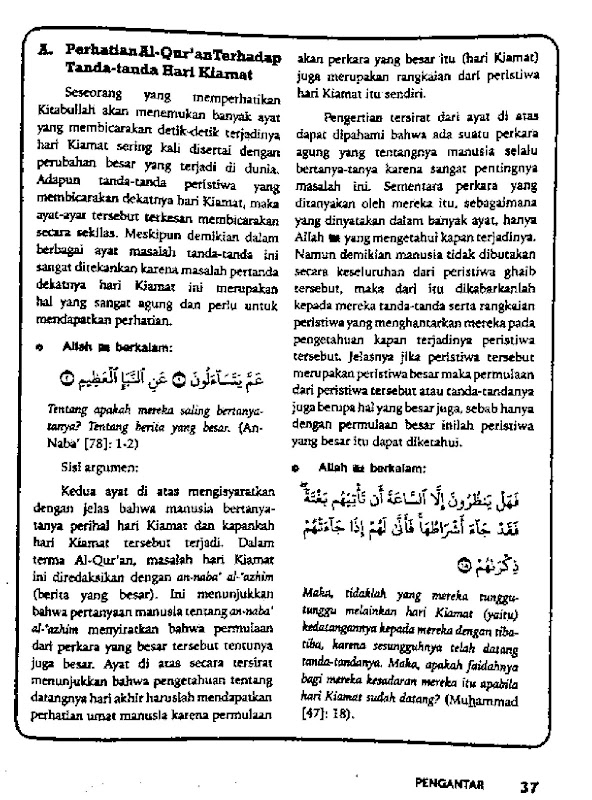 A. Perhatian Al-Qur'an Terhadap
Tanda-tanda Hari Kiamat
Seseorang yang memperhatikan
Kitabullah akan menemukan banyak ayat
yang membicarakan detik-detik terjadinya
hari Kiamat sering kali disertai dengan
perubahan besar yang terjadi di dunia.
Adapun tanda-tanda peristiwa yang
membicarakan dekatnya hari Kiamat, maka
ayat-ayat tersebut terkesan membicarakan
secara sekilas. Meskipun demikian dalam
berbagai ayat masalah tanda-tanda ini
sangat ditekankan karena masalah pertanda
dekatnya hari Kiamat ini merupakan
hal yang sangat agung dan perlu untuk
mendapatkan perhatian.
• Allah ﷻ berkalam:
عَمَّ يَتَسَآءَلُونَ ۝١ عَنِ ٱلنَّبَإِ ٱلْعَظِيمِ ۝٢
Tentang apakah mereka saling bertanya-
tanya? Tentang berita yang besar. (An-
Naba' [78]: 1-2)
Sisi argumen:
Kedua ayat di atas mengisyaratkan
dengan jelas bahwa manusia bertanya-
tanya perihal hari Kiamat dan kapankah
hari Kiamat tersebut terjadi. Dalam
terma Al-Qur'an, masalah hari Kiamat
ini diredaksikan dengan an-naba' al-'azhim
(berita yang besar). Ini menunjukkan
bahwa pertanyaan manusia tentang an-naba'
al-'azhim menyiratkan bahwa permulaan
dari perkara yang besar tersebut tentunya
juga besar. Ayat di atas secara tersirat
menunjukkan bahwa pengetahuan tentang
datangnya hari akhir haruslah mendapatkan
perhatian umat manusia karena permulaan
akan perkara yang besar itu (hari Kiamat)
juga merupakan rangkaian dari peristiwa
hari Kiamat itu sendiri.
Pengertian tersirat dari ayat di atas
dapat dipahami bahwa ada suatu perkara
agung yang tentangnya manusia selalu
bertanya-tanya karena sangat pentingnya
masalah ini. Sementara perkara yang
ditanyakan oleh mereka itu, sebagaimana
yang dinyatakan dalam banyak ayat, hanya
Allah ﷻ yang mengetahui kapan terjadinya.
Namun demikian manusia tidak dibutakan
secara keseluruhan dari peristiwa ghaib
tersebut, maka dari itu dikabarkanlah
kepada mereka tanda-tanda serta rangkaian
peristiwa yang menghantarkan mereka pada
pengetahuan kapan terjadinya peristiwa
tersebut. Jelasnya jika peristiwa tersebut
merupakan peristiwa besar maka permulaan
dari peristiwa tersebut atau tanda-tandanya
juga berupa hal yang besar juga, sebab hanya
dengan permulaan besar inilah peristiwa
yang besar itu dapat diketahui.
• Allah ﷻ berkalam:
فَهَلْ يَنظُرُونَ إِلَّا ٱلسَّاعَةَ أَن تَأْتِيَهُم بَغْتَةً ۖ
فَقَدْ جَآءَ أَشْرَاطُهَا ۚ فَأَنَّىٰ لَهُمْ إِذَا جَآءَتْهُمْ
ذِكْرَىٰهُمْ ۝١٨
Maka, tidaklah yang mereka tunggu-
tunggu melainkan hari Kiamat (yaitu)
kedatangannya kepada mereka dengan tiba-
tiba, karena sesungguhnya telah datang
tanda-tandanya. Maka, apakah faidahnya
bagi mereka kesadaran mereka itu apabila
hari Kiamat sudah datang? (Muḥammad
[47]: 18).
PENGANTAR 37